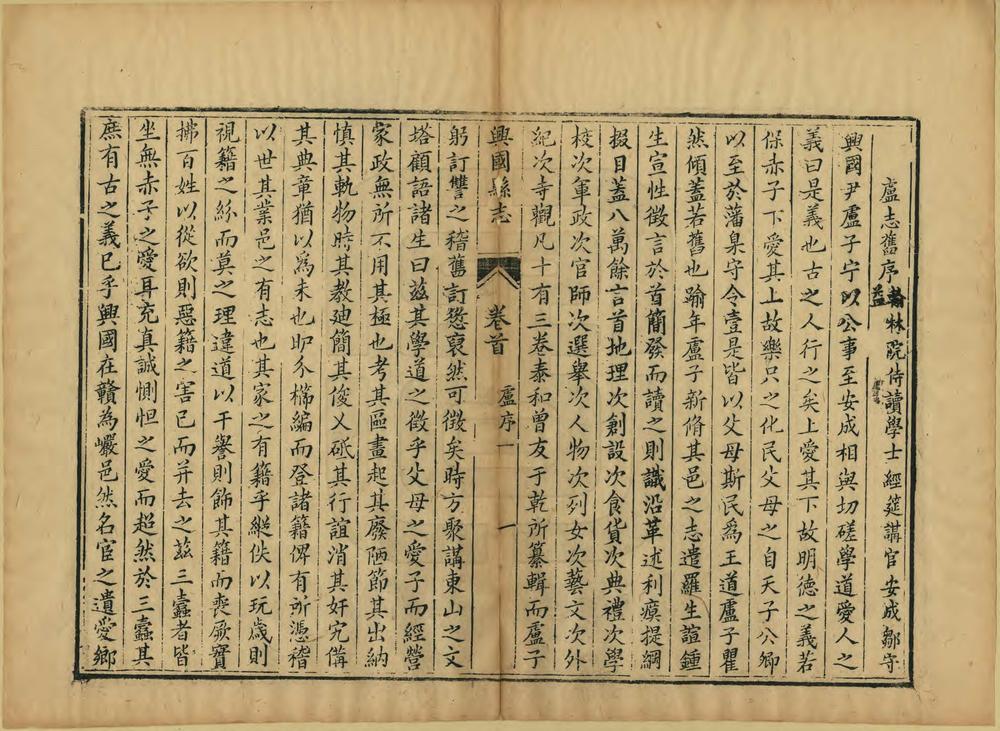 盧志舊序翰林院侍讀學士經筵講官安成鄒守益
興國尹盧子宁以公事至安成相與切磋學道愛人之
義曰是義也古之人行之矣上愛其下故明德之義若
保赤子下愛其上故樂只之化民父母之自天子公卿
以至於藩臬守令壹是皆以父母斯民爲王道盧子瞿
然傾蓋若舊也踰年盧子新脩其邑之志遣羅生諠鍾
生宣性徵言於首簡發而讀之則識沿革述利瘼提綱
掇目蓋八萬餘言首地理次創設次食貨次典禮次學
校次軍政次官師次選舉次人物次列女次藝文次外
紀次寺觀凡十有三卷泰和曾友于乾所纂輯而盧子
興國縣志
卷首
盧序一
一
躬訂讐之稽舊訂愆裒然可徵矣時方聚講東山之文
塔顧語諸生曰茲其學道之徵乎父母之愛子而經營
家政無所不用其極也考其區畫起其廢陋節其出納
慎其軌物時其教廸簡其俊乂砥其行誼消其奸宄偹
其典章猶以爲未也昈分櫛編而登諸籍俾有所憑稽
以世其業邑之有志也其家之有籍乎縱佚以玩歲則
視籍之紛而莫之理違道以干譽則飾其籍而喪厥實
拂百姓以從欲則惡籍之害已而并去之茲三蠹者皆
坐無赤子之愛耳充真誠惻怛之愛而超然於三蠹其
庶有古之義已乎興國在贛爲巖邑然名宦之遺愛鄉